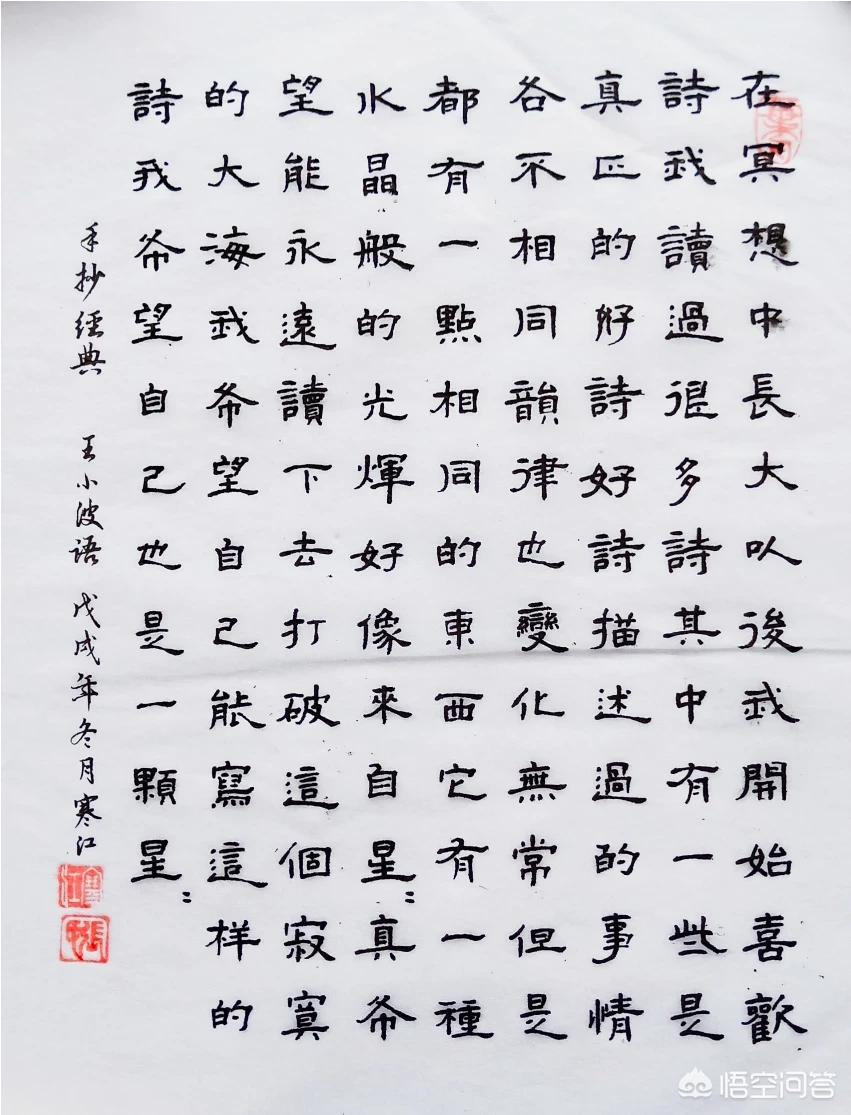 在冥想中長大以後我開始喜歡
詩我讀過很多詩其中有一些是
真正的好詩好詩描述過的事情
各不相同韻律也變化無常但是
都有一點相同的東西它有一種
水晶般的光輝好像來自星：真希
望能永遠讀下去打破這個寂寞
的大海我希望自己能寫這样的
詩我希望自己也是一顆星：
手抄經典 王小波语 戊戌年冬月寒江
寒江
悟空问答